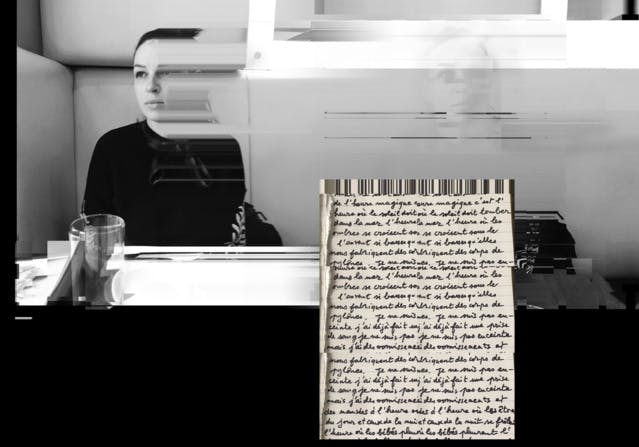 de l'heure magique heure magique c'est l'
heure où le soleil doit où le soleil doit tomber
dans la mer l'heure la mer l'heure où les
ombres se croisent sos se croisent sous le
l'avant si basses qu'elles
nous fabriquent des corbriquent des corps de
pylônes. je ne suis es. je ne suis pas en-
ombres se croisent sos se croisent sous le
l'avant si basses qu'elles
nous fabriquent des corbriquent des corps de
pylônes. je ne suis es. je ne suis pas en-
ceinte j'ai déjà fait su j'ai déjà fait une prise
de sang je ne suis pas je ne suis pas enceinte
mais j'ai des vomissements des vomissements et
nous fabriquent des corbriquent des corps de
pylônes. je ne suis es. je ne suis pas en-
ceinte j'ai déjà fait su j'ai déjà fait une prise
de sang je ne suis pas je ne suis pas enceinte
mais j'ai des vomissements des vomissements et
des nausées à l'heure à l'heure où les être
du jour et ceux de la nuit et ceux de la nuit se frôle
l'heure où les bébés pleurent les bébés pleurent l'